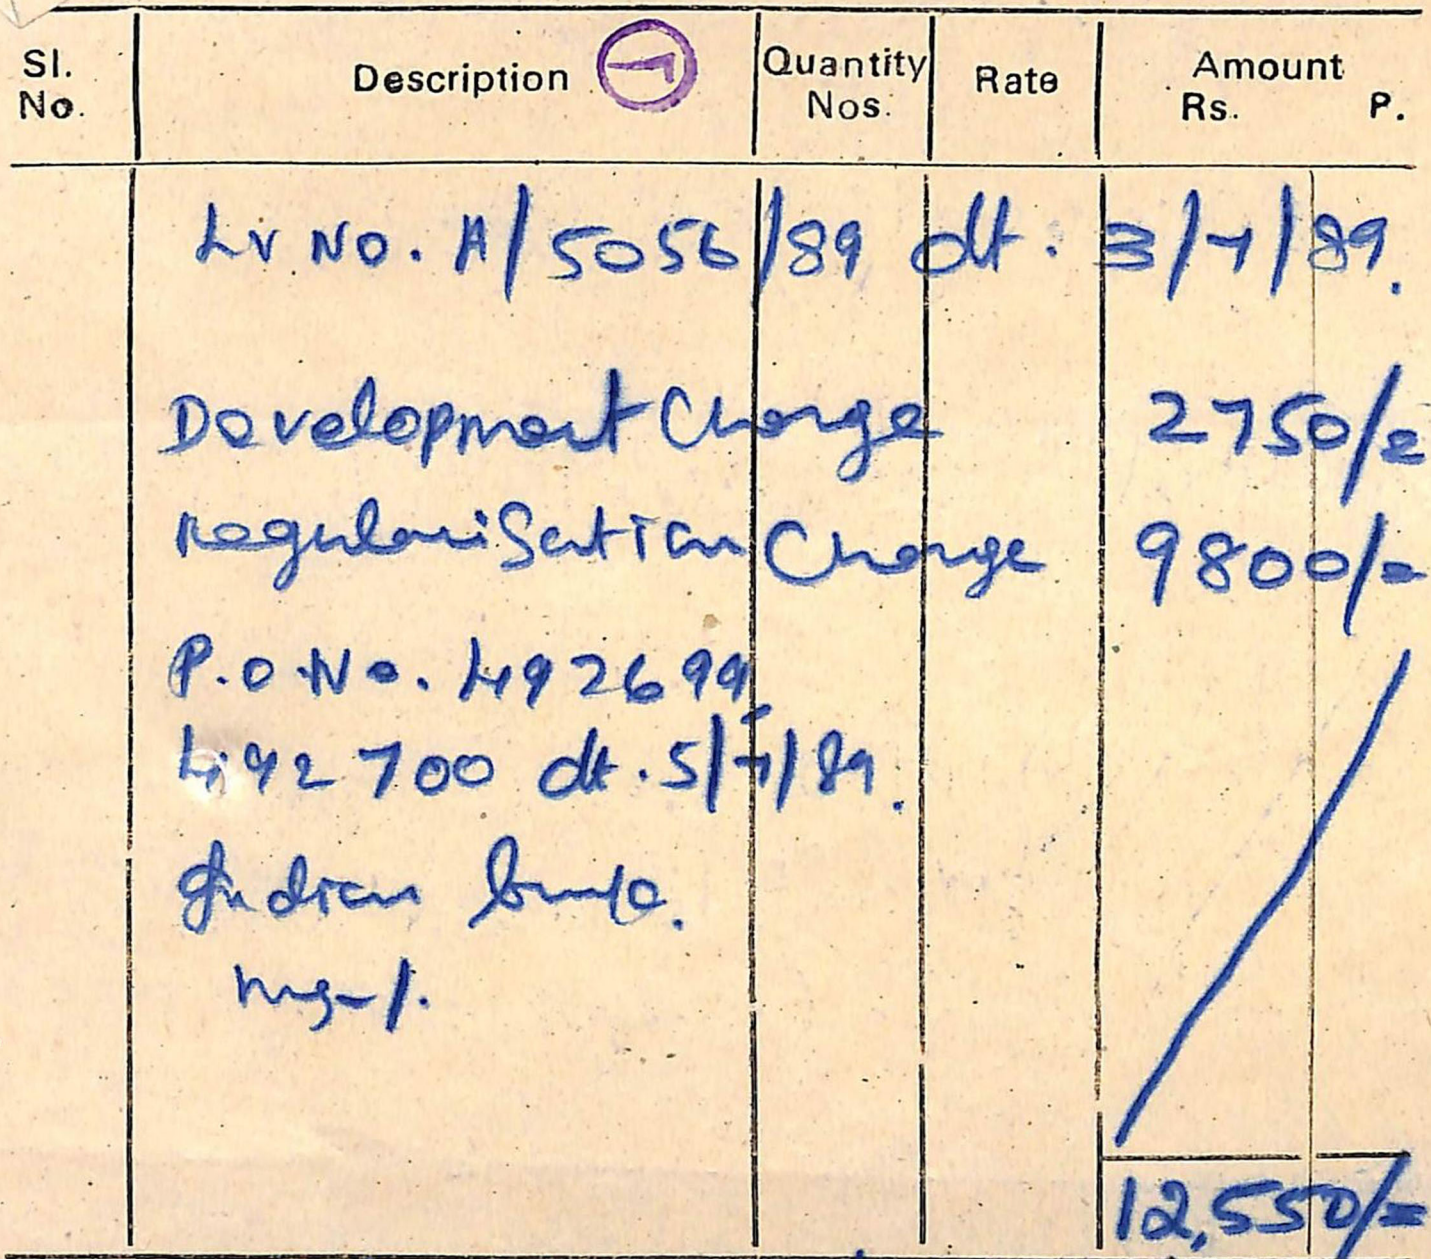 Sl. No. Description Quantity Nos. Rate Amount Rs. P.
Lr No. A/5056/89 dt. 3/7/89.
Development Charge 2750/=
Regularisation Charge 9800/=
P.O. No. 492699,
492700 dt. 5/7/89.
Indian Bank.
12,550/=